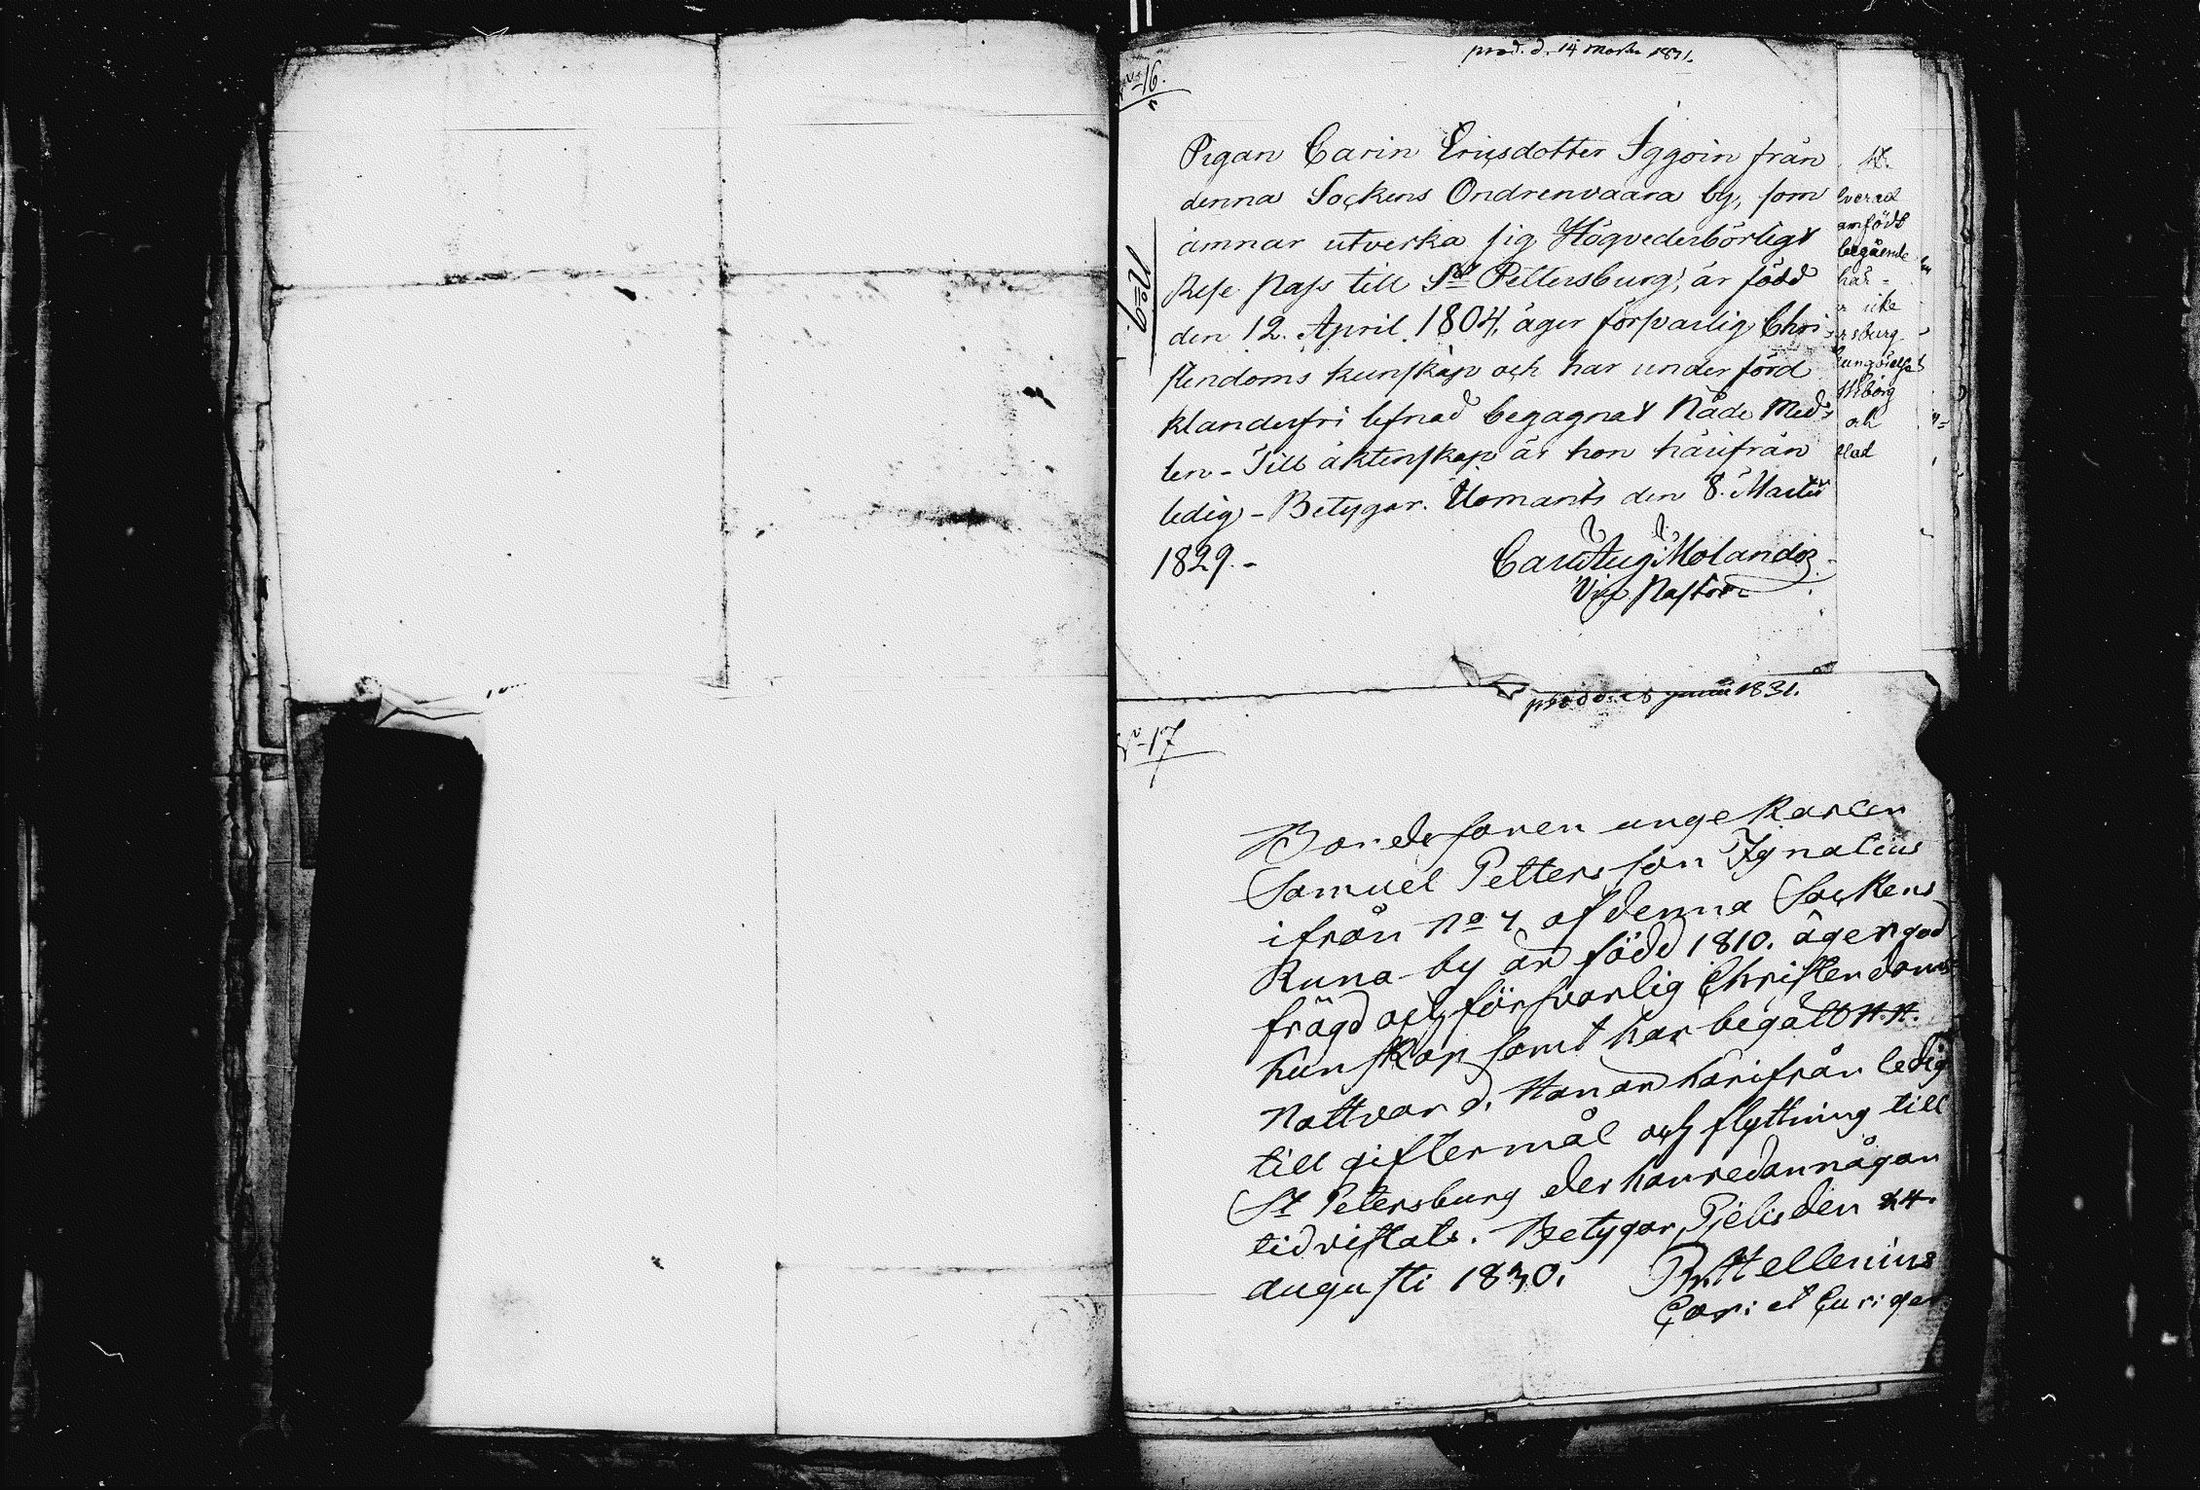 prod. d. 14 Martii 1831.
No 16.
Pigan Carin Ericsdotter Iggoin från
denna Sockens Ondrenvaara by, som
ämnar utverka sig Högvederbörligt
Rese Pass till St Pettersburg, är född
den 12. April 1804, äger försvarlig Chri-
stendoms kunskap och har under förd
klanderfri lefnad begagnat Nåde Med-
len - Till äktenskap är hon härifrån
ledig - Betygar. Ilomants den 8. Martii
1829. -
Carl Aug: Molander
Vice Pastor
anfödt
begående
har
icke
rsburg
Wiborg
och
prod. d. 28 junii 1831.
No 17
Bondesonen unge Karlen
Samuel Pettersson Ignatius
ifrån No 4 af denna Sockens
Kuna by är född 1810. äger god
frägd och försvarlig Christendoms
kunskap samt har begått H. H.
Nattvard. Han är härifrån ledig
till giftermål och flyttning till
St Petersburg der han redan någon
tid vistats. Betygar, Pjelis den 24.
augusti 1830.
Hellenius